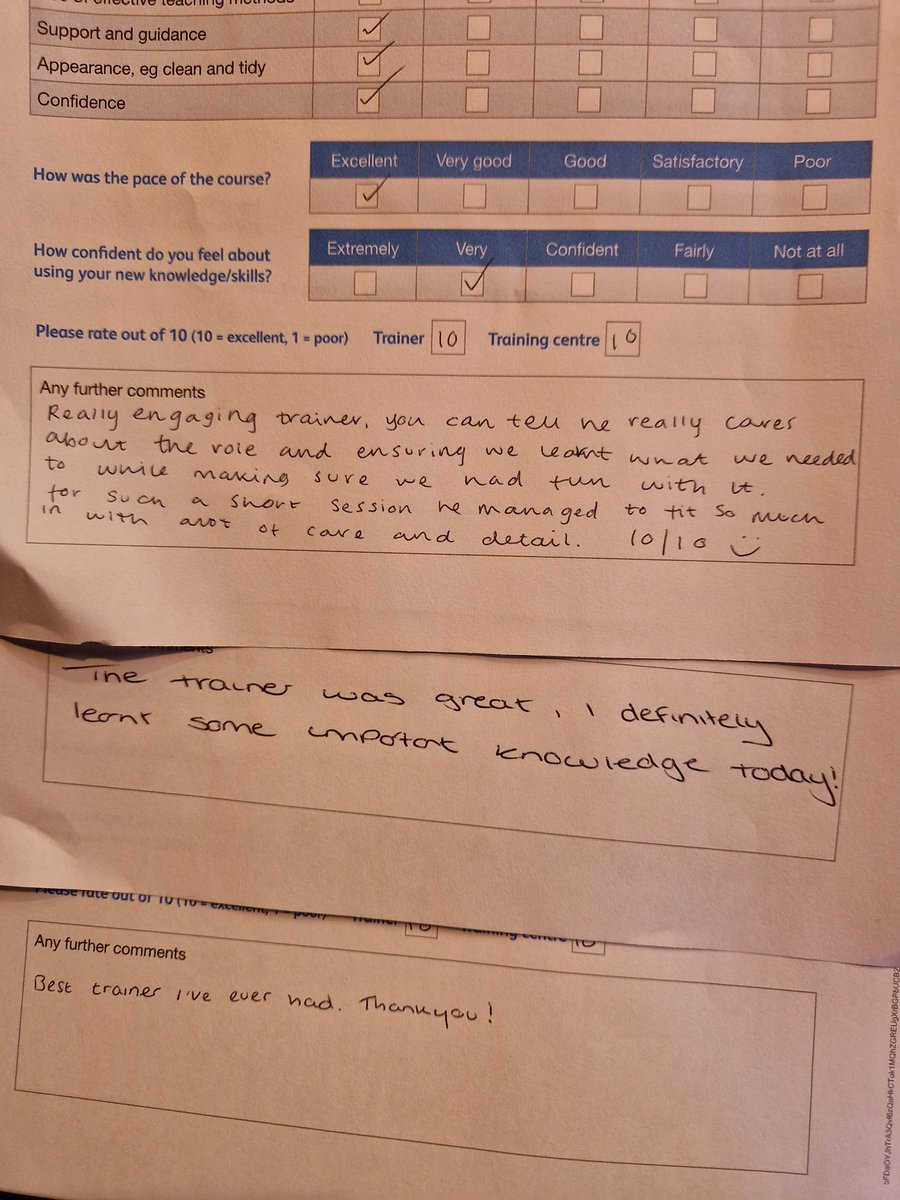 of effective teaching methods
Support and guidance
Appearance, eg clean and tidy
Confidence
Excellent Very good Good Satisfactory Poor
How was the pace of the course?
Extremely Very Confident Fairly Not at all
How confident do you feel about
using your new knowledge/skills?
Please rate out of 10 (10 = excellent, 1 = poor) Trainer 10 Training centre 10
Any further comments
Really engaging trainer, you can tell he really cares
about the role and ensuring we learnt what we needed
to while making sure we had fun with it.
for such a short session he managed to fit so much
in with alot of care and detail. 10/10
The trainer was great, I definitely
learnt some impotant knowledge today!
Please rate out of 10 (10 = excellent, 1 = poor) Trainer 10 Training centre 10
Any further comments
Best trainer I've ever had. Thankyou!